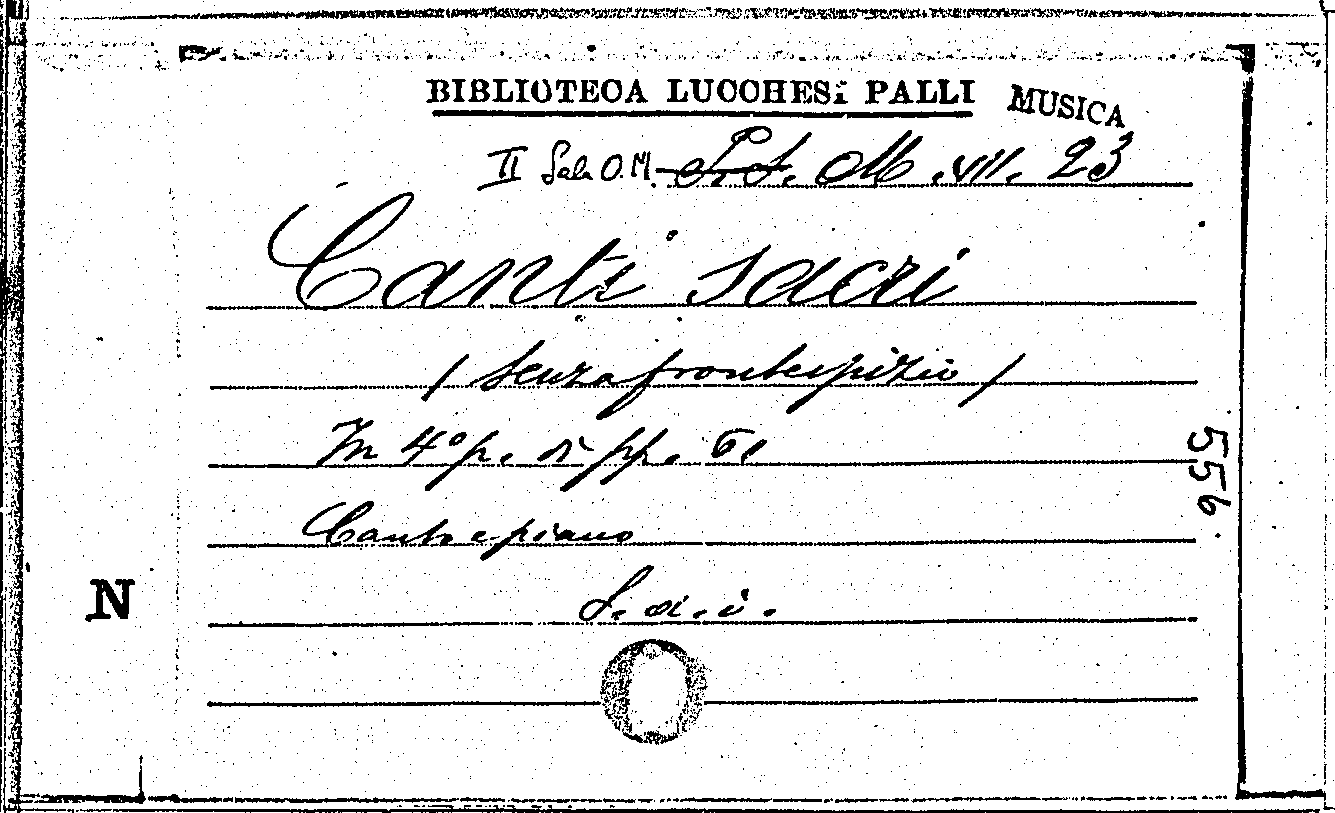 BIBLIOTECA LUCCHESI PALLI MUSICA
II Sala O.M. P.S. M. VII. 23
Canti sacri
(senza frontespizio)
In 4° p. di pp. 61
Canto e piano
S. a. i.
556
N